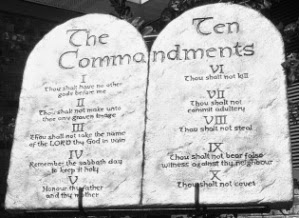 The Ten
Commandments
I
Thou shalt have no other
gods before me
II
Thou shalt not make unto
thee any graven image
III
Thou shalt not take the name
of the LORD thy God in vain
IV
Remember the sabbath day
to keep it holy
V
Honour thy father
and thy mother
VI
Thou shalt not kill
VII
Thou shalt not
commit adultery
VIII
Thou shalt not steal
IX
Thou shalt not bear false
witness against thy neighbour
X
Thou shalt not covet